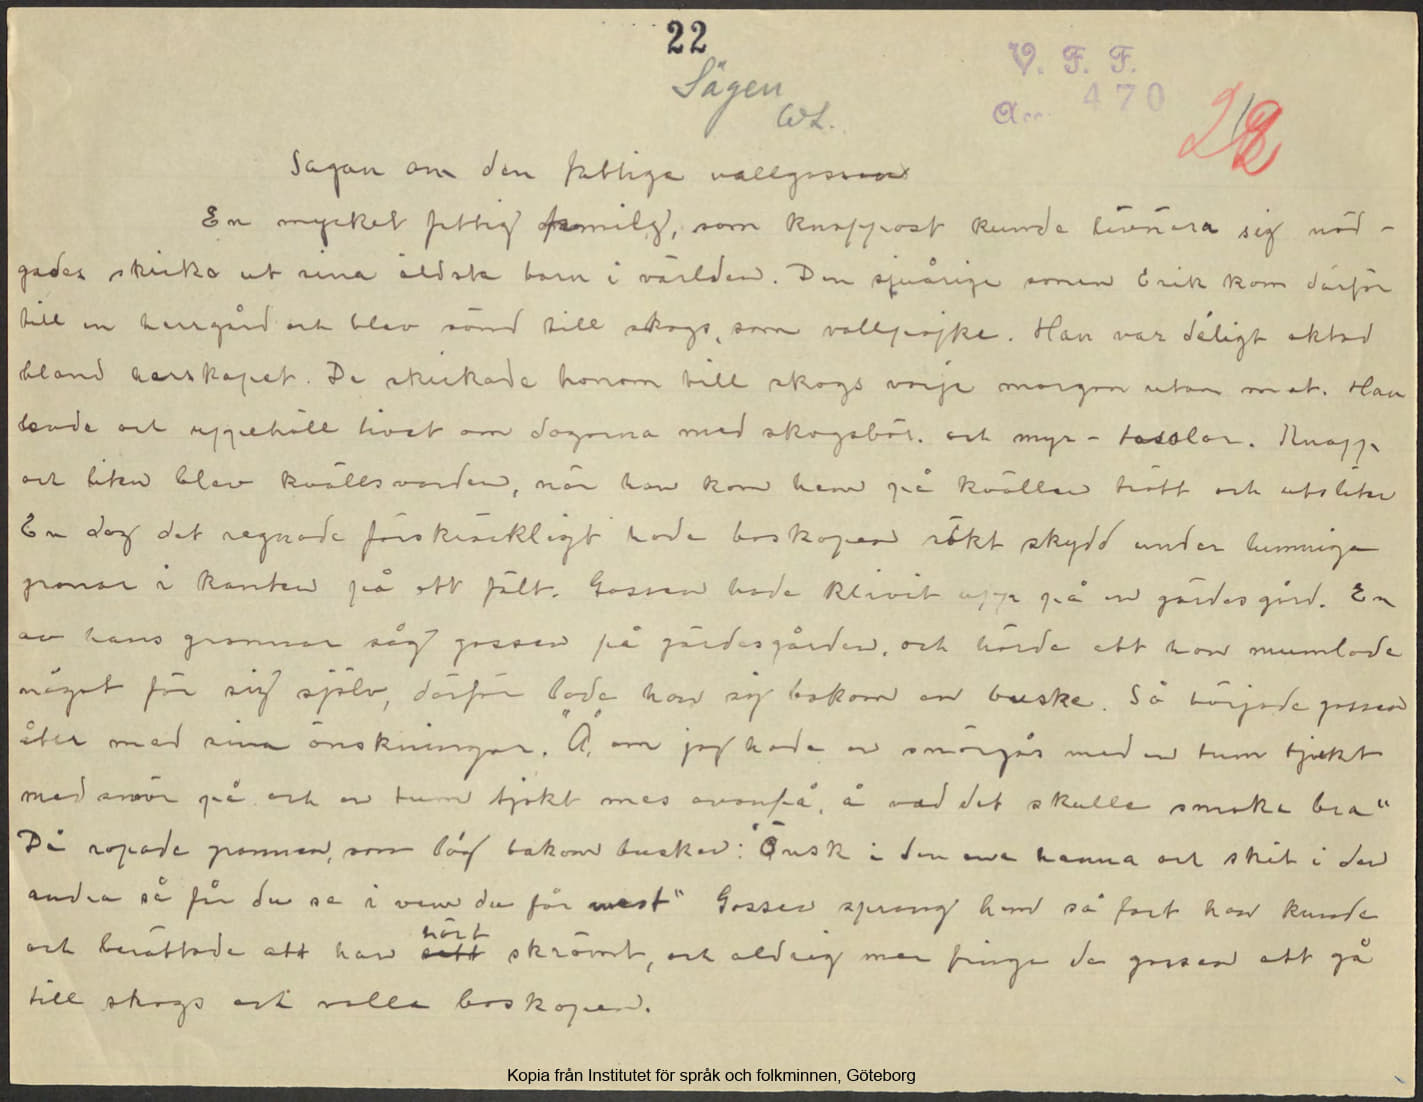 22
V. F. F.
Sägen
Acc. 470
WL.
Sagan om den fattiga vallgossen
En mycket fattig familj, som knappast kunde livnära sig nöd-
gades skicka ut sina äldsta barn i världen. Den sjuårige sonen Erik kom därför
till en herrgård och blev sänd till skogs, som vallpojke. Han var dåligt aktad
bland herskapet. De skickade honom till skogs varje morgon utan mat. Han
levde och uppehöll livet om dagarna med skogsbär. och myr- tasslor. Knapp
och liten blev kvällsvarden, när han kom hem på kvällen trött och utsliten
En dag det regnade förskräckligt hade boskapen sökt skydd under lummiga
granar i kanten på ett fält. Gossen hade klivit upp på en gärdesgård. En
av hans grannar såg gossen på gärdesgården, och hörde att han mumlade
något för sig själv, därför lade han sig bakom en buske. Så började gossen
åter med sina önskningar. "Å, om jag hade en smörgås med en tum tjokt
med smör på och en tum tjokt mes ovanpå, å vad det skulle smaka bra"
Då ropade grannen, som låg bakom busken: "Önsk i den ena hanna och skit i den
andra så får du se i vem du får mest" Gossen sprang hem så fort han kunde
och berättade att han sett hört skrömt, och aldrig mer fingo de gossen att gå
till skogs och valla boskapen.
Kopia från Institutet för språk och folkminnen, Göteborg